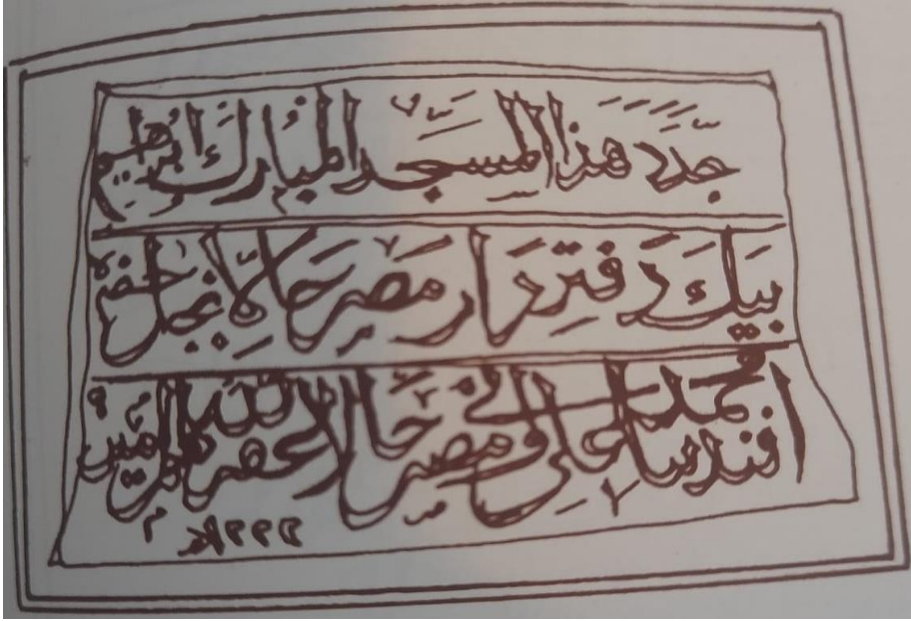 جدد هذا المسجد المبارك ابرهيم
بيك دفتردار مصر حالا نجل حضرة
افندينا محمد علي والي مصر حالا الله امين